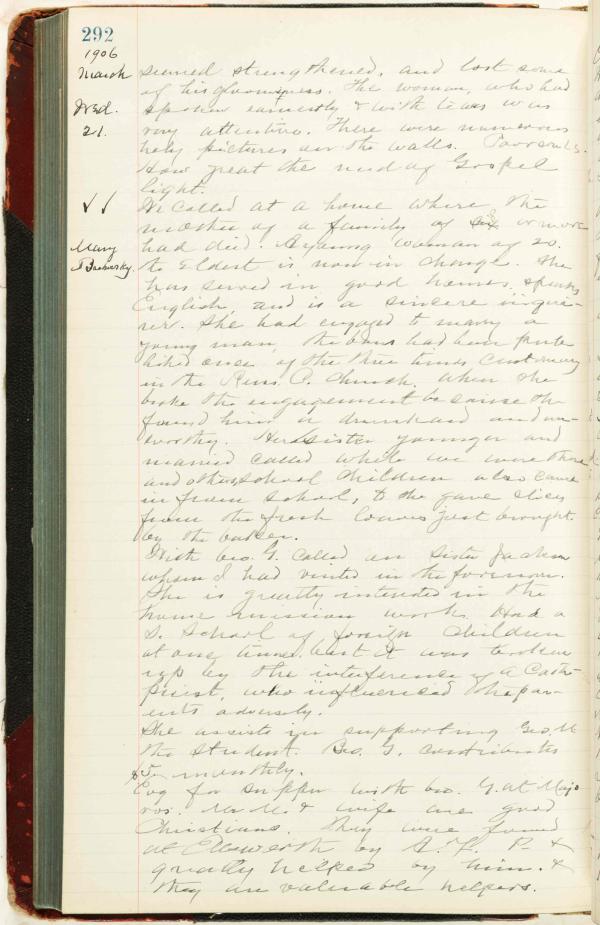 292
1906
March seemed strengthened, and lost some
of his gloominess. The woman, who had
Wed. spoken earnestly & with tears was
21. very attentive. There were numerous
holy pictures on the walls.
How great the need of Gospel
light.
✓✓ We called at a home where the
mother of a family of six or more
Mary had died. A young woman of 20.
the eldest is now in charge. She
has served in good homes, speaks
English, and is a sincere inqui-
rer. She had engaged to marry a
young man, the bans had been pub-
lished once of the three times customary
in the Rom. C. Church, when she
broke the engagement because she
found him a drunkard and un-
worthy. Her sister younger and
married called while we were there
and other school children also came
in from school, to she gave slices
from the fresh loaves just brought
by the baker.
With bro. G. called on Sister Jackson
whom I had visited in the forenoon.
She is greatly interested in the
home mission work. Had a
S. School of foreign children
at one time but it was broken
up by the interference of a Cath.
priest, who influenced the par-
ents adversely.
She assists in supporting Geo. M.
the student. Bro. G. contributes
$5 monthly.
Evg for supper with bro. G. at Majo
ros. Mr M. & wife are good
Christians. They were found
at Elsworth by A. F. P. &
greatly helped by him. &
they are valuable helpers.